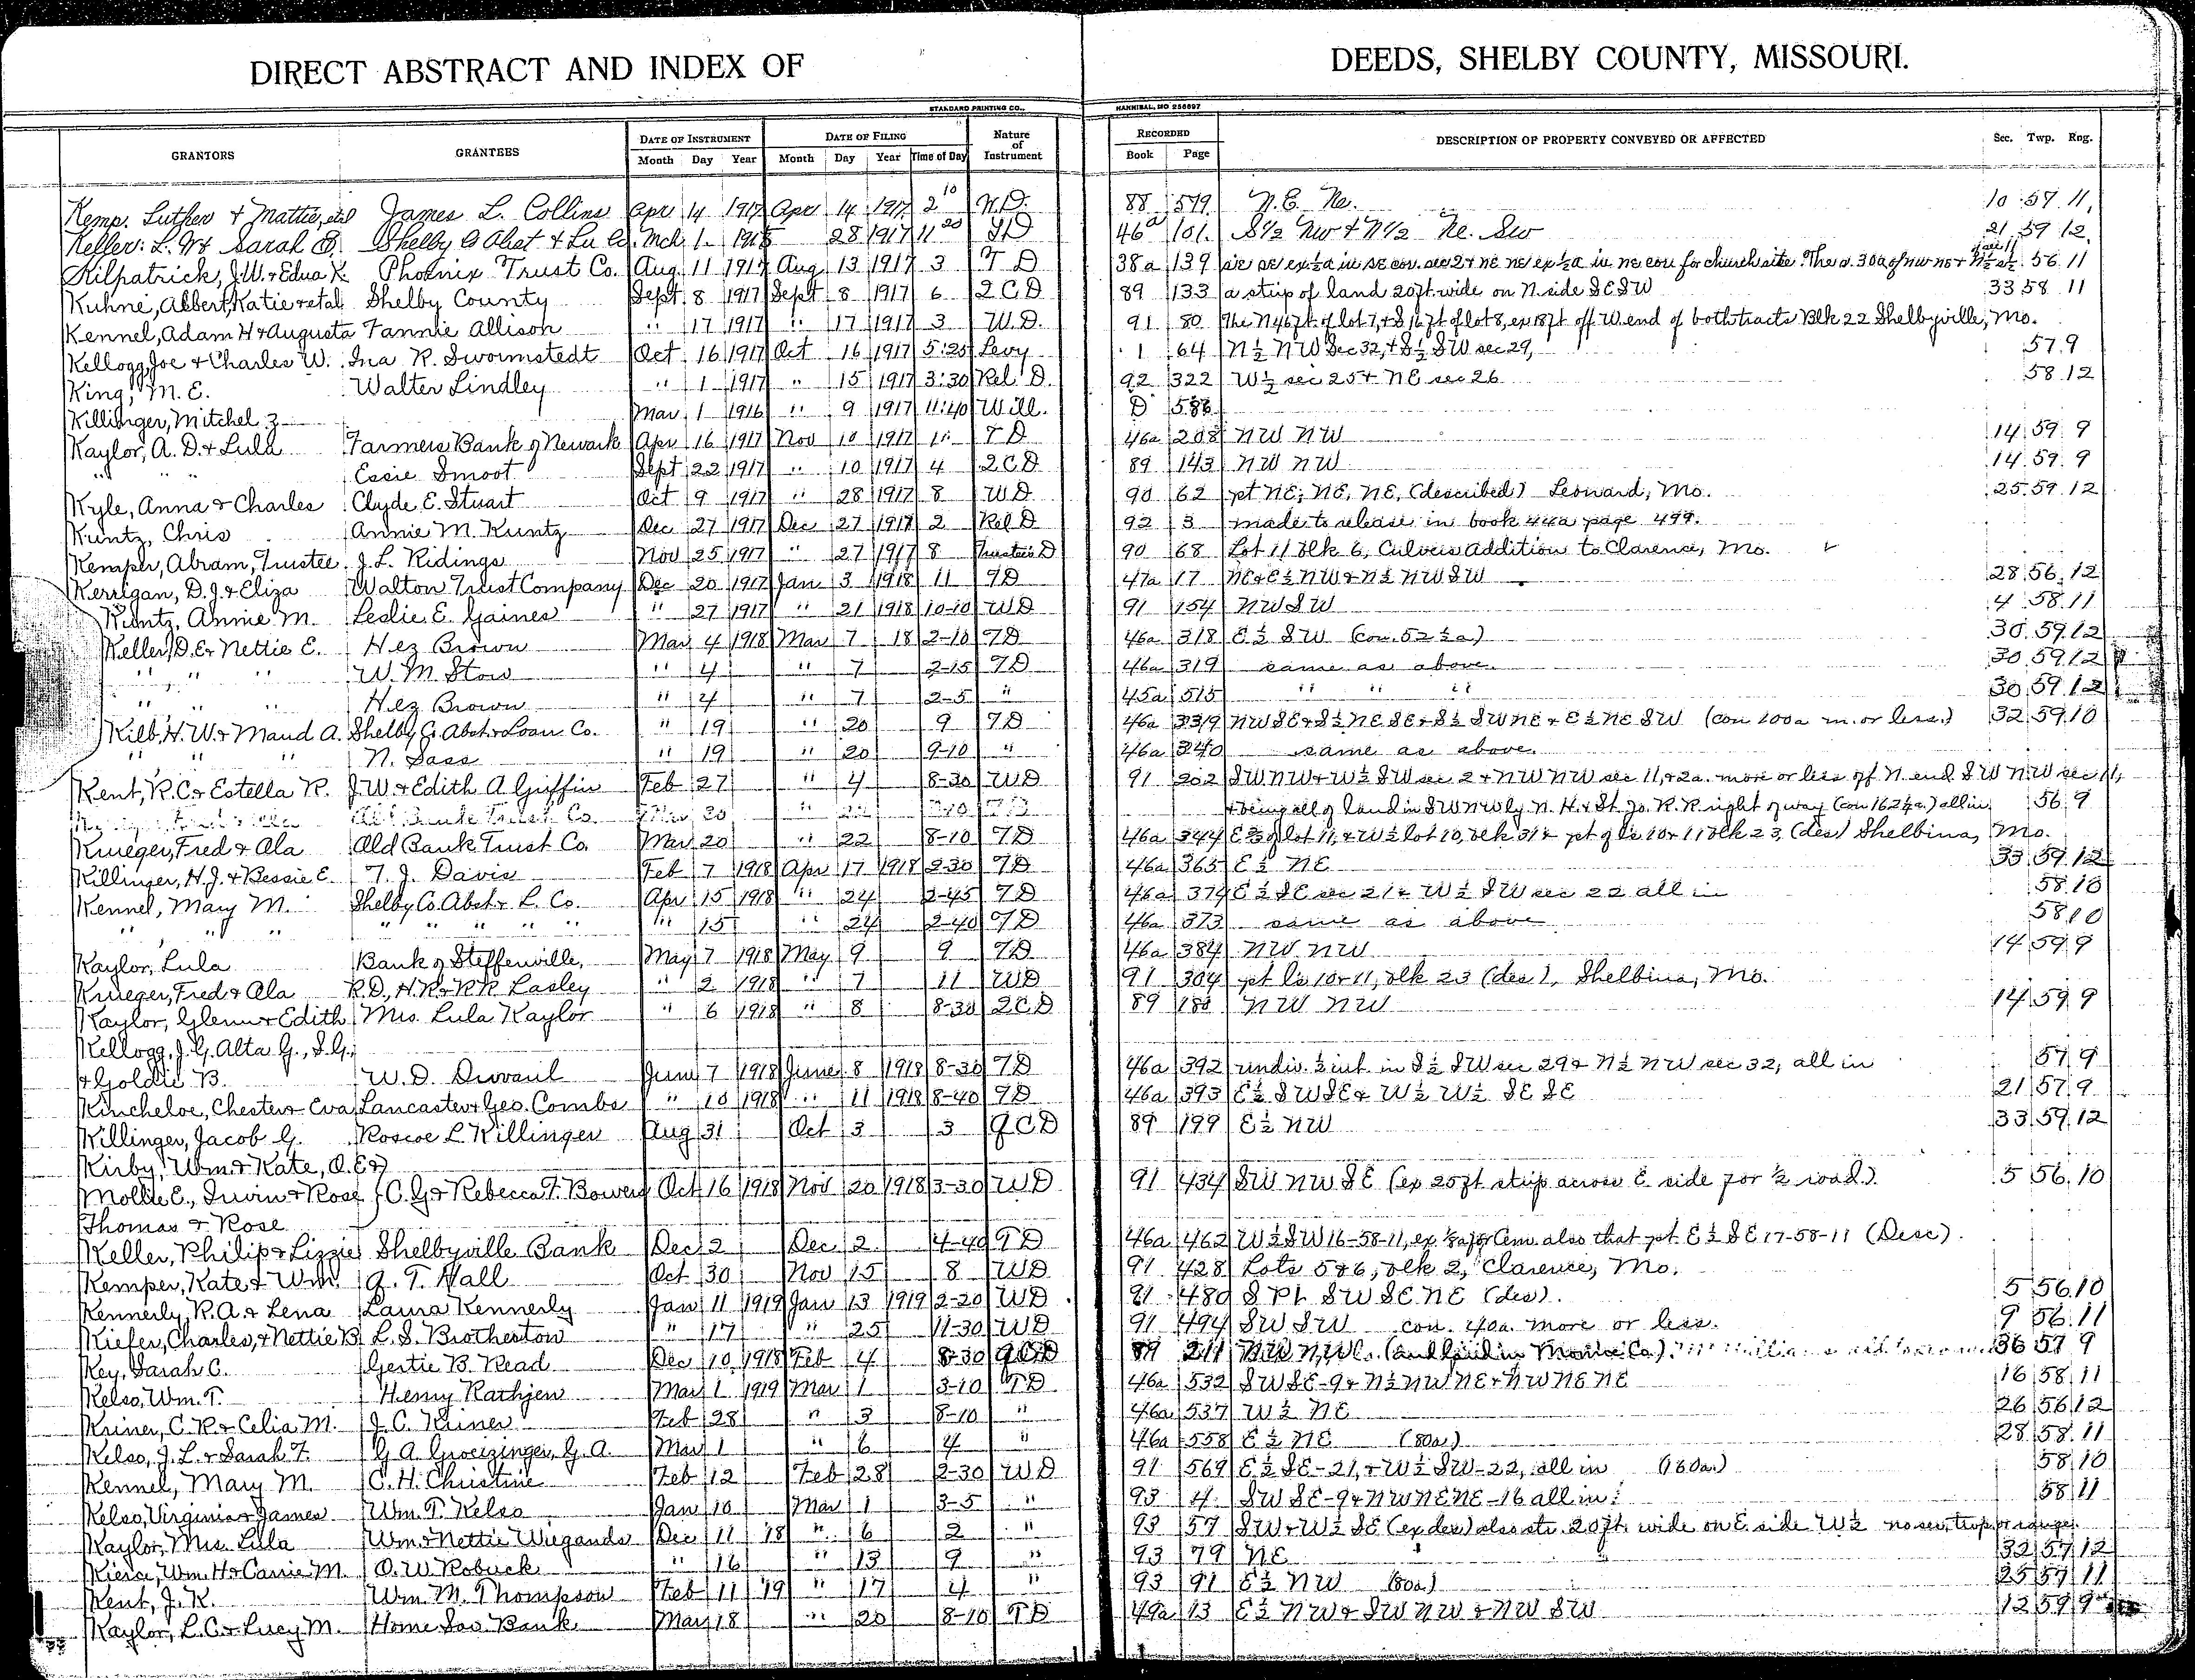 DIRECT ABSTRACT AND INDEX OF DEEDS, SHELBY COUNTY, MISSOURI.
STANDARD PRINTING CO., HANNIBAL, MO 256897
GRANTORS GRANTEES DATE OF INSTRUMENT Month Day Year DATE OF FILING Month Day Year Time of Day Nature of Instrument RECORDED Book Page DESCRIPTION OF PROPERTY CONVEYED OR AFFECTED Sec. Twp. Rng.
Kemp, Luther & Mattie, James L. Collins Apr 14 1917 Apr 14 1917 2 10 W.D. 88 519 N.E. Ne. 10 57 11
Keller, L. W & Sarah E. Shelby Co Abst & Lu Co. Mch 1 28 1917 11 20 TD 46a 101 S½ NW & N½ Ne. SW 21 59 12
Kilpatrick, J.W. & Edna K. Phoenix Trust Co. Aug 11 1917 Aug 13 1917 3 TD 38a 139 SE SE ex ½a in SE cor. sec 2 & NE NE ex ½a in NE cor for church site. 56 11
Kuhne, Albert, Katie & etal Shelby County Sept 8 1917 Sept 8 1917 6 2CD 89 133 a strip of land 20ft. wide on N. side SE SW 33 58 11
Kennel, Adam H & Augusta Fannie Allison " 17 1917 " 17 1917 3 W.D. 91 80 The N 46 ft of lot 7, & S 16 ft of lot 8, ex 18 ft off W. end of both tracts Blk 22 Shelbyville, Mo.
Kellogg, Joe & Charles W. Ina R. Swoimstedt Oct 16 1917 Oct 16 1917 5:25 Levy 1 64 N½ NW Sec 32, & S½ SW sec 29, 57 9
King, M. E. Walter Lindley " 1 1917 " 15 1917 3:30 Rel D. 92 322 W½ sec 25 & NE sec 26 58 12
Killinger, Mitchel Z Mar 1 1916 " 9 1917 11:40 Will. D 586
Kaylor, A. D. & Lula Farmers Bank of Newark Apr 16 1917 Nov 10 1917 11 TD 46a 208 NW NW 14 59 9
" " Essie Smoot Sept 22 1917 " 10 1917 4 2CD 89 143 NW NW 14 59 9
Kyle, Anna & Charles Clyde E. Stuart Oct 9 1917 " 28 1917 8 WD 90 62 pt NE, NE, NE, (described) Leonard, Mo. 25 59 12
Kuntz, Chris Annie M. Kuntz Dec 27 1917 Dec 27 1917 2 Rel D 92 3 made to release in book 44a page 499.
Kemper, Abram, Trustee J. L. Ridings Nov 25 1917 " 27 1917 8 Trustees D 90 68 Lot 11 Blk 6, Culvers Addition to Clarence, Mo.
Kerrigan, D.J. & Eliza Walton Trust Company Dec 20 1917 Jan 3 1918 11 TD 47a 17 NE & E½ NW & N½ NW SW 28 56 12
Kuntz, Annie M. Leslie E. Gaines " 27 1917 " 21 1918 10-10 WD 91 154 NW SW 4 58 11
Keller, D.E. & Nettie E. Hez Brown Mar 4 1918 Mar 7 18 2-10 TD 46a 318 E½ SW (con. 52½a) 30 59 12
" " " W. M. Stow " 4 " 7 2-15 TD 46a 319 same as above. 30 59 12
" " " Hez Brown " 4 " 7 2-5 " 45a 515 " " " 30 59 12
Kilb, H. W. & Maud A. Shelby Co. Abst. & Loan Co. " 19 " 20 9 TD 46a 339 NW SE & S½ NE SE & S½ SW NE & E½ NE SW (con 100a m. or less.) 32 59 10
" " " N. Sass " 19 " 20 9-10 " 46a 340 same as above.
Kent, R.C. & Estella R. J.W. & Edith A Griffin Feb 27 " 4 8-30 WD 91 202 SW NW & W½ SW sec 2 & NW NW sec 11, & 2a. more or less off N. end SW NW sec 11,
& being all of land in SW NW ly. N. H. & St. Jo. R.R. right of way (con 162½a.) all in 56 9
Krueger, Fred & Ala Old Bank Trust Co. Mar 20 " 22 8-10 TD 46a 344 of lot 11, & W½ lot 10, Blk 31 & pt of ls 10 & 11 Blk 23, (des) Shelbina, Mo.
Killinger, H.J. & Bessie E. T. J. Davis Feb 7 1918 Apr 17 1918 2-30 TD 46a 365 E½ NE 33 59 12
Kennel, Mary M. Shelby Co. Abst. & L. Co. Apr 15 1918 " 24 2-45 TD 46a 374 E½ SE sec 21 & W½ SW sec 22 all in 58 10
" " " " " " " " " 15 " 24 2-40 TD 46a 373 same as above 58 10
Kaylor, Lula Bank of Steffenville, May 7 1918 May 9 9 TD 46a 384 NW NW 14 59 9
Krueger, Fred & Ala R.D., H.R. & R.R. Lasley " 2 1918 " 7 11 WD 91 304 pt ls 10 & 11, Blk 23 (des), Shelbina, Mo.
Kaylor, Glenn & Edith Mrs Lula Kaylor " 6 1918 " 8 8-30 2CD 89 180 NW NW 14 59 9
Kellogg, J. G. Alta G., S.G.,
& Goldie B. W. D. Duvaul June 7 1918 June 8 1918 8-30 TD 46a 392 undiv. ½ int. in S½ SW sec 29 & N½ NW sec 32, all in 57 9
Kincheloe, Chester & Eva Lancaster & Geo. Combs " 10 1918 " 11 1918 8-40 TD 46a 393 E½ SW SE & W½ W½ SE SE 21 57 9
Killinger, Jacob G. Roscoe L. Killinger Aug 31 Oct 3 3 QCD 89 199 E½ NW 33 59 12
Kirby, Wm. & Kate, O.E. &
Mollie E., Irvin & Rose C. G. & Rebecca F. Bowers Oct 16 1918 Nov 20 1918 3-30 WD 91 434 SW NW SE (ex 25ft strip across E. side for ½ road.) 5 56 10
Thomas & Rose
Keller, Philip & Lizzie Shelbyville Bank Dec 2 Dec 2 4-40 TD 46a 462 W½ SW 16-58-11, ex for Cem. also that pt. E½ SE 17-58-11 (Desc).
Kemper, Kate & Wm. G. T. Hall Oct 30 Nov 15 8 WD 91 428 Lots 5 & 6, Blk 2, Clarence, Mo.
Kennerly, R.A. & Lena Laura Kennerly Jan 11 1919 Jan 13 1919 2-20 WD 91 480 S Pt. SW SE NE (des). 5 56 10
Kiefer, Charles, & Nettie B L. S. Brotherton " 17 " 25 11-30 WD 91 494 SW SW con. 40a. more or less. 9 56 11
Key, Sarah C. Gertie B. Read Dec 10 1918 Feb 4 8-30 QCD 89 211 36 57 9
Kelso, Wm. T. Henry Rathjen Mar 1 1919 Mar 1 3-10 TD 46a 532 SW SE-9 & N½ NW NE & NW NE NE 16 58 11
Kriner, C. R. & Celia M. J. C. Kriner Feb 28 " 3 8-10 " 46a 537 W½ NE 26 56 12
Kelso, J. L. & Sarah F. G A Groezinger, G. A. Mar 1 " 6 4 " 46a 558 E½ NE (80a.) 28 58 11
Kennel, Mary M. C. H. Christine Feb 12 Feb 28 2-30 WD 91 569 E½ SE-21, & W½ SW-22, all in (160a.) 58 10
Kelso, Virginia & James Wm. T. Kelso Jan 10 Mar 1 3-5 " 93 4 SW SE-9 & NW NE NE-16 all in: 58 11
Kaylor, Mrs. Lula Wm. & Nettie Wiegands Dec 11 '18 " 6 2 " 93 57 SW & W½ SE (ex des) also str. 20ft. wide on E. side W½ no sec, twp, or range
Kierce, Wm. H & Carrie M. O. W. Robuck " 16 " 13 9 " 93 79 NE 32 57 12
Kent, J. K. Wm. M. Thompson Feb 11 '19 " 17 4 " 93 91 E½ NW (80a) 25 57 11
Kaylor, L.C. & Lucy M. Home Sav. Bank Mar 18 " 20 8-10 TD 49a 13 E½ NW & SW NW & NW SW 12 59 9